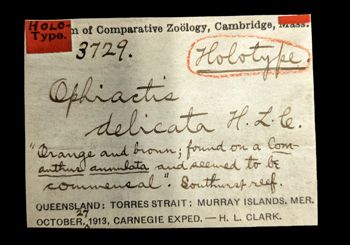 HOLO-
TYPE.
m of Comparative Zoölogy, Cambridge, Mass.
3729.
Holotype.
Ophiactis
delicata H. L. C.
"Orange and brown; found on a Com-
anthus annulata and seemed to be
commensal". Southwest reef.
QUEENSLAND: TORRES STRAIT: MURRAY ISLANDS, MER.
OCTOBER, 27 1913, CARNEGIE EXPED. — H. L. CLARK.